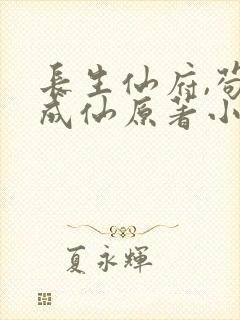 長生仙府,茍
成仙原著小
夏永輝